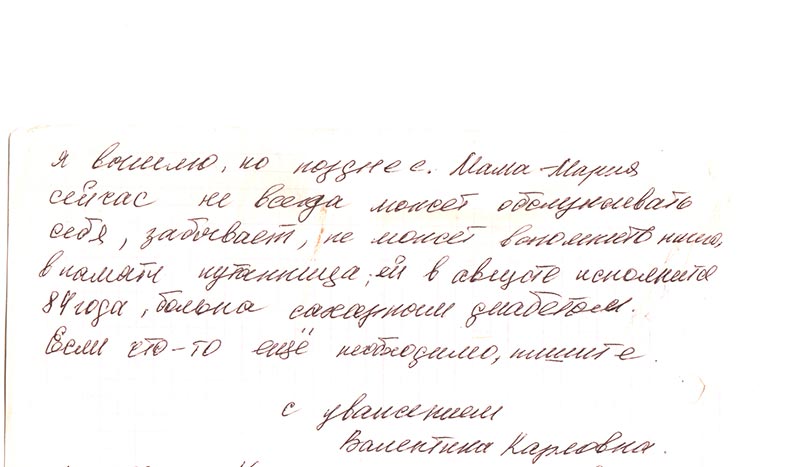 я вышлю, но позднее. Мама-Мария
сейчас не всегда может обслуживать
себя, забывает, не может вспомнить
в памяти путанница, ей в августе исполнится
84 года, больна сахарным диабетом.
Если что-то ещё необходимо, пишите.
с уважением
Валентина Карловна.